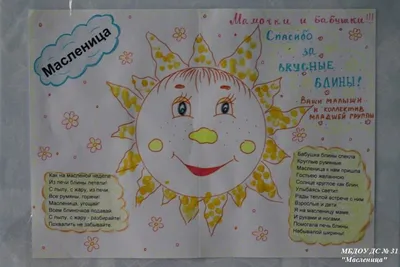 Масленица
Мамочки и бабушки!!!
Спасибо
за
вкусные
блины!
Ваши малыши
и коллектив
младшей группы
Как на масленой неделе
Из печи блины летели!
С пылу, с жару, из печи,
Все румяны, горячи!
Масленица, угощай!
Всем блиночков подавай.
С пылу, с жару - разбирайте!
Похвалить не забывайте.
Бабушка блины спекла
Круглые румяные
Масленица к нам пришла
Гостьею желанною
Солнце круглое как блин
Улыбаясь светит
Рады теплой встрече с ним
Взрослые и дети
Я на масленицу маме
И руками и ногами
Помогала печь блины,
небывалой ширины!
МБДОУ ДС № 31
"Масленица"